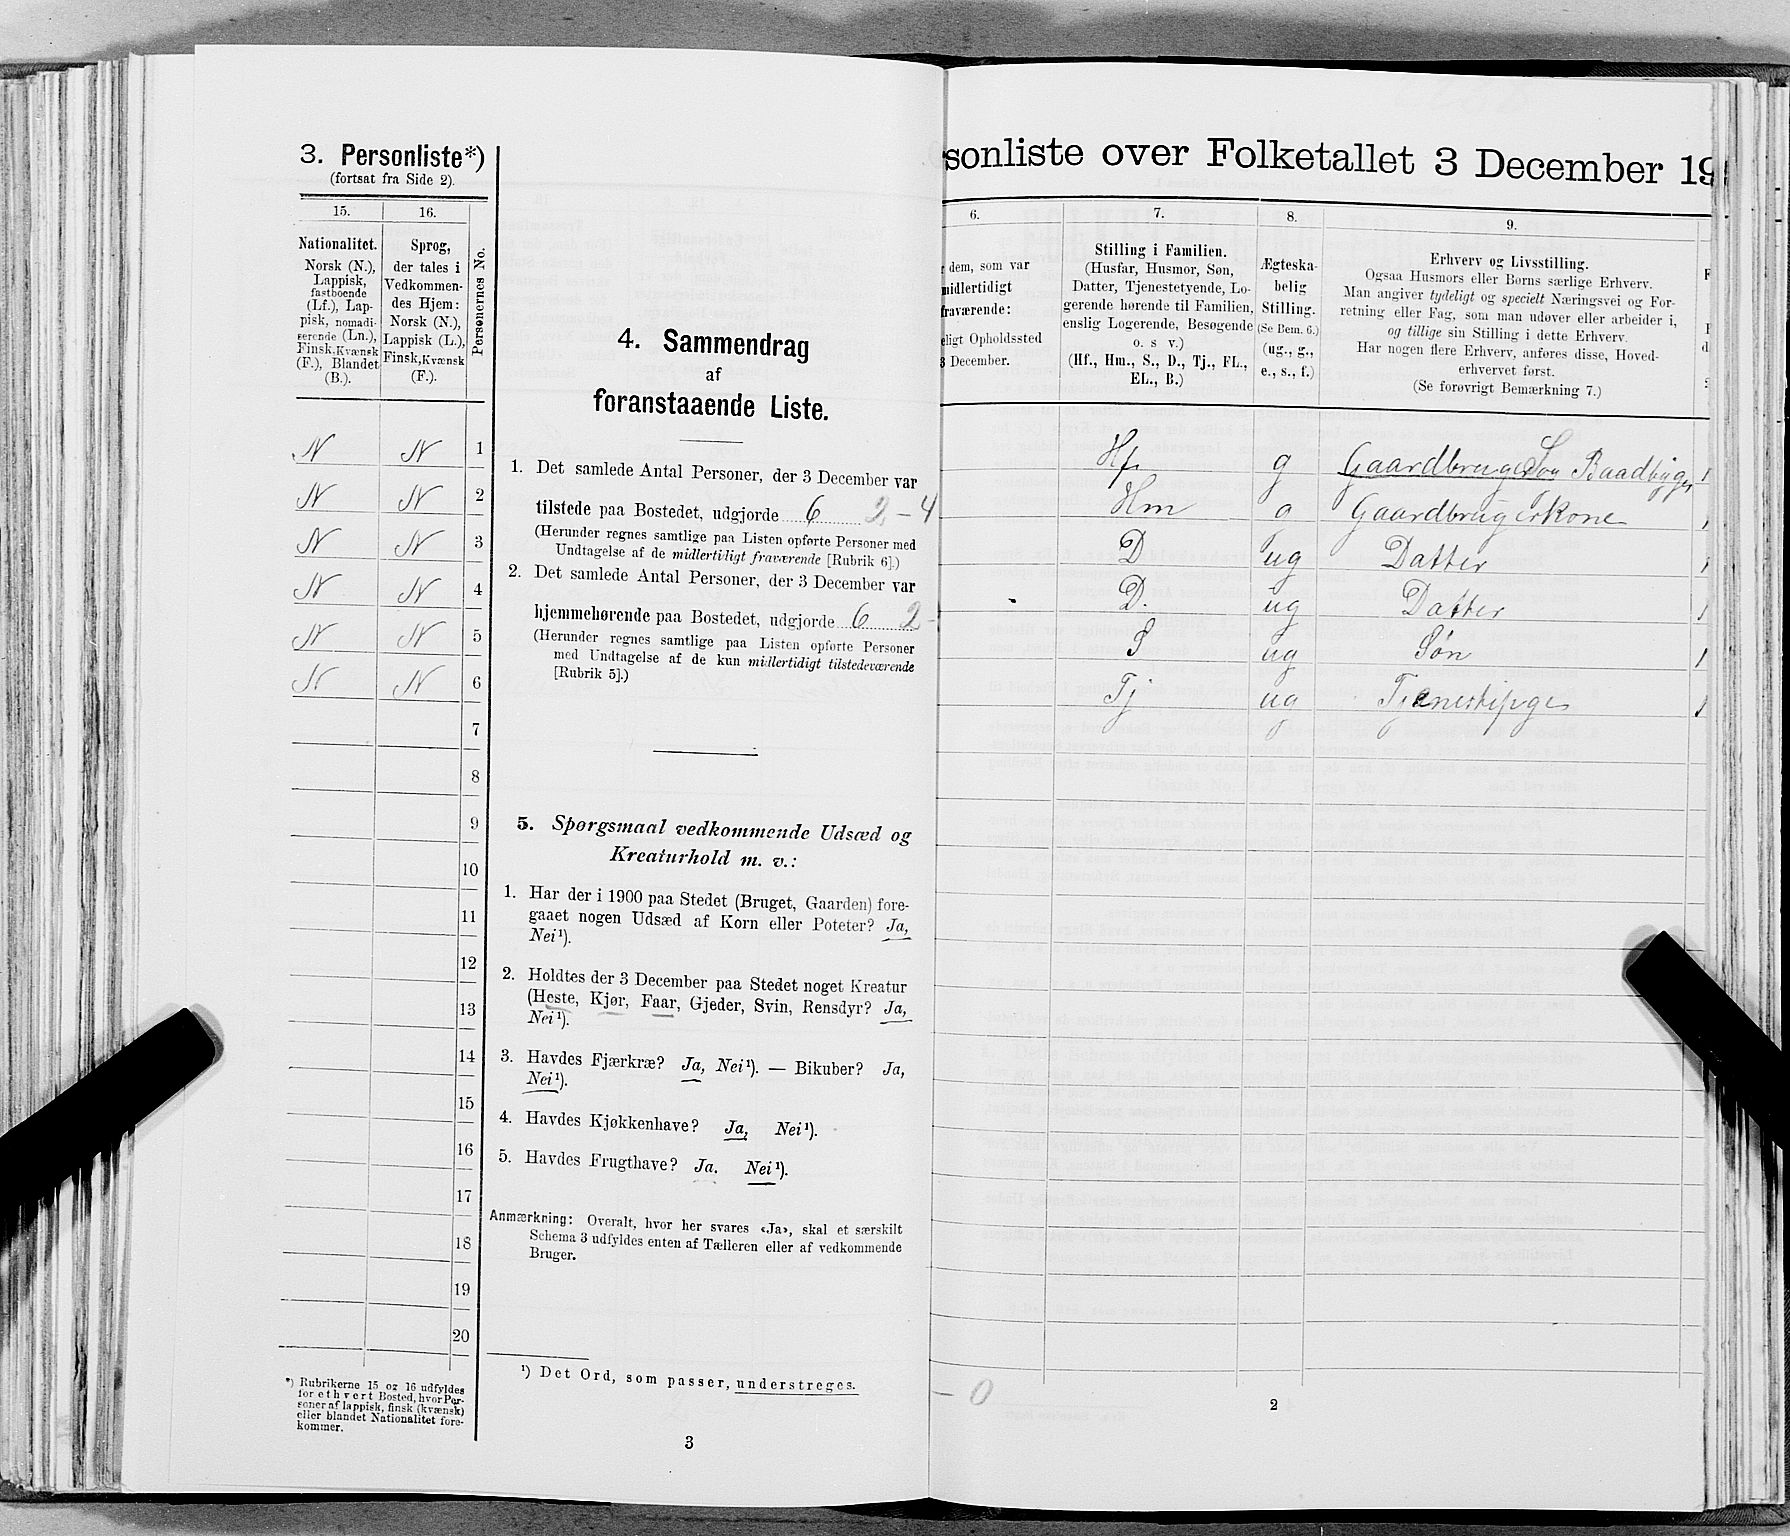 3. Personliste*)
(fortsat fra Side 2).
15.
16.
Personernes No.
Nationalitet.
Norsk (N.),
Lappisk,
fastboende
(Lf.), Lap-
pisk, nomadi-
serende (Ln.),
Finsk, Kvænsk
(F.), Blandet
(B.).
Sprog,
der tales i
Vedkommen-
des Hjem:
Norsk (N.),
Lappisk (L.),
Finsk, Kvænsk
(F.).
N N 1
N N 2
N N 3
N N 4
N N 5
N N 6
7
8
9
10
11
12
13
14
15
16
17
18
19
20
*) Rubrikerne 15 og 16 udfyldes
for ethvert Bosted, hvor Per-
soner af lappisk, finsk (kvænsk)
eller blandet Nationalitet fore-
kommer.
4. Sammendrag
af
foranstaaende Liste.
1. Det samlede Antal Personer, der 3 December var
tilstede paa Bostedet, udgjorde 6 2-4
(Herunder regnes samtlige paa Listen opførte Personer med
Undtagelse af de midlertidigt fraværende [Rubrik 6].)
2. Det samlede Antal Personer, der 3 December var
hjemmehørende paa Bostedet, udgjorde 6 2-
(Herunder regnes samtlige paa Listen opførte Personer
med Undtagelse af de kun midlertidigt tilstedeværende
[Rubrik 5].)
5. Spørgsmaal vedkommende Udsæd og
Kreaturhold m. v.:
1. Har der i 1900 paa Stedet (Bruget, Gaarden) fore-
gaaet nogen Udsæd af Korn eller Poteter? Ja,
Nei¹).
2. Holdtes der 3 December paa Stedet noget Kreatur
(Heste, Kjør, Faar, Gjeder, Svin, Rensdyr? Ja,
Nei¹).
3. Havdes Fjærkræ? Ja, Nei¹). — Bikuber? Ja,
Nei¹).
4. Havdes Kjøkkenhave? Ja, Nei¹).
5. Havdes Frugthave? Ja. Nei¹).
Anmærkning: Overalt, hvor her svares «Ja», skal et særskilt
Schema 3 udfyldes enten af Tælleren eller af vedkommende
Bruger.
¹) Det Ord, som passer, understreges.
3
sonliste over Folketallet 3 December 19
6.
7.
8.
9.
dem, som var
midlertidigt
fraværende:
eligt Opholdssted
3 December.
Stilling i Familien.
(Husfar, Husmor, Søn,
Datter, Tjenestetyende, Lo-
gerende hørende til Familien,
enslig Logerende, Besøgende
o. s v.)
(Hf., Hm., S., D., Tj., FL.,
EL., B.)
Ægteska-
belig
Stilling.
(Se Bem. 6.)
(ug., g.,
e., s., f.)
Erhverv og Livsstilling.
Ogsaa Husmors eller Børns særlige Erhverv.
Man angiver tydeligt og specielt Næringsvei og For-
retning eller Fag, som man udøver eller arbeider i,
og tillige sin Stilling i dette Erhverv.
Har nogen flere Erhverv, anføres disse, Hoved-
erhvervet først.
(Se forøvrigt Bemærkning 7.)
Hf g Gaardbruger Baadbyger
Hm g Gaardbrugerkone
D ug Datter
D. ug Datter
S ug Søn
Tj ug Tjenestepige
- 0
2